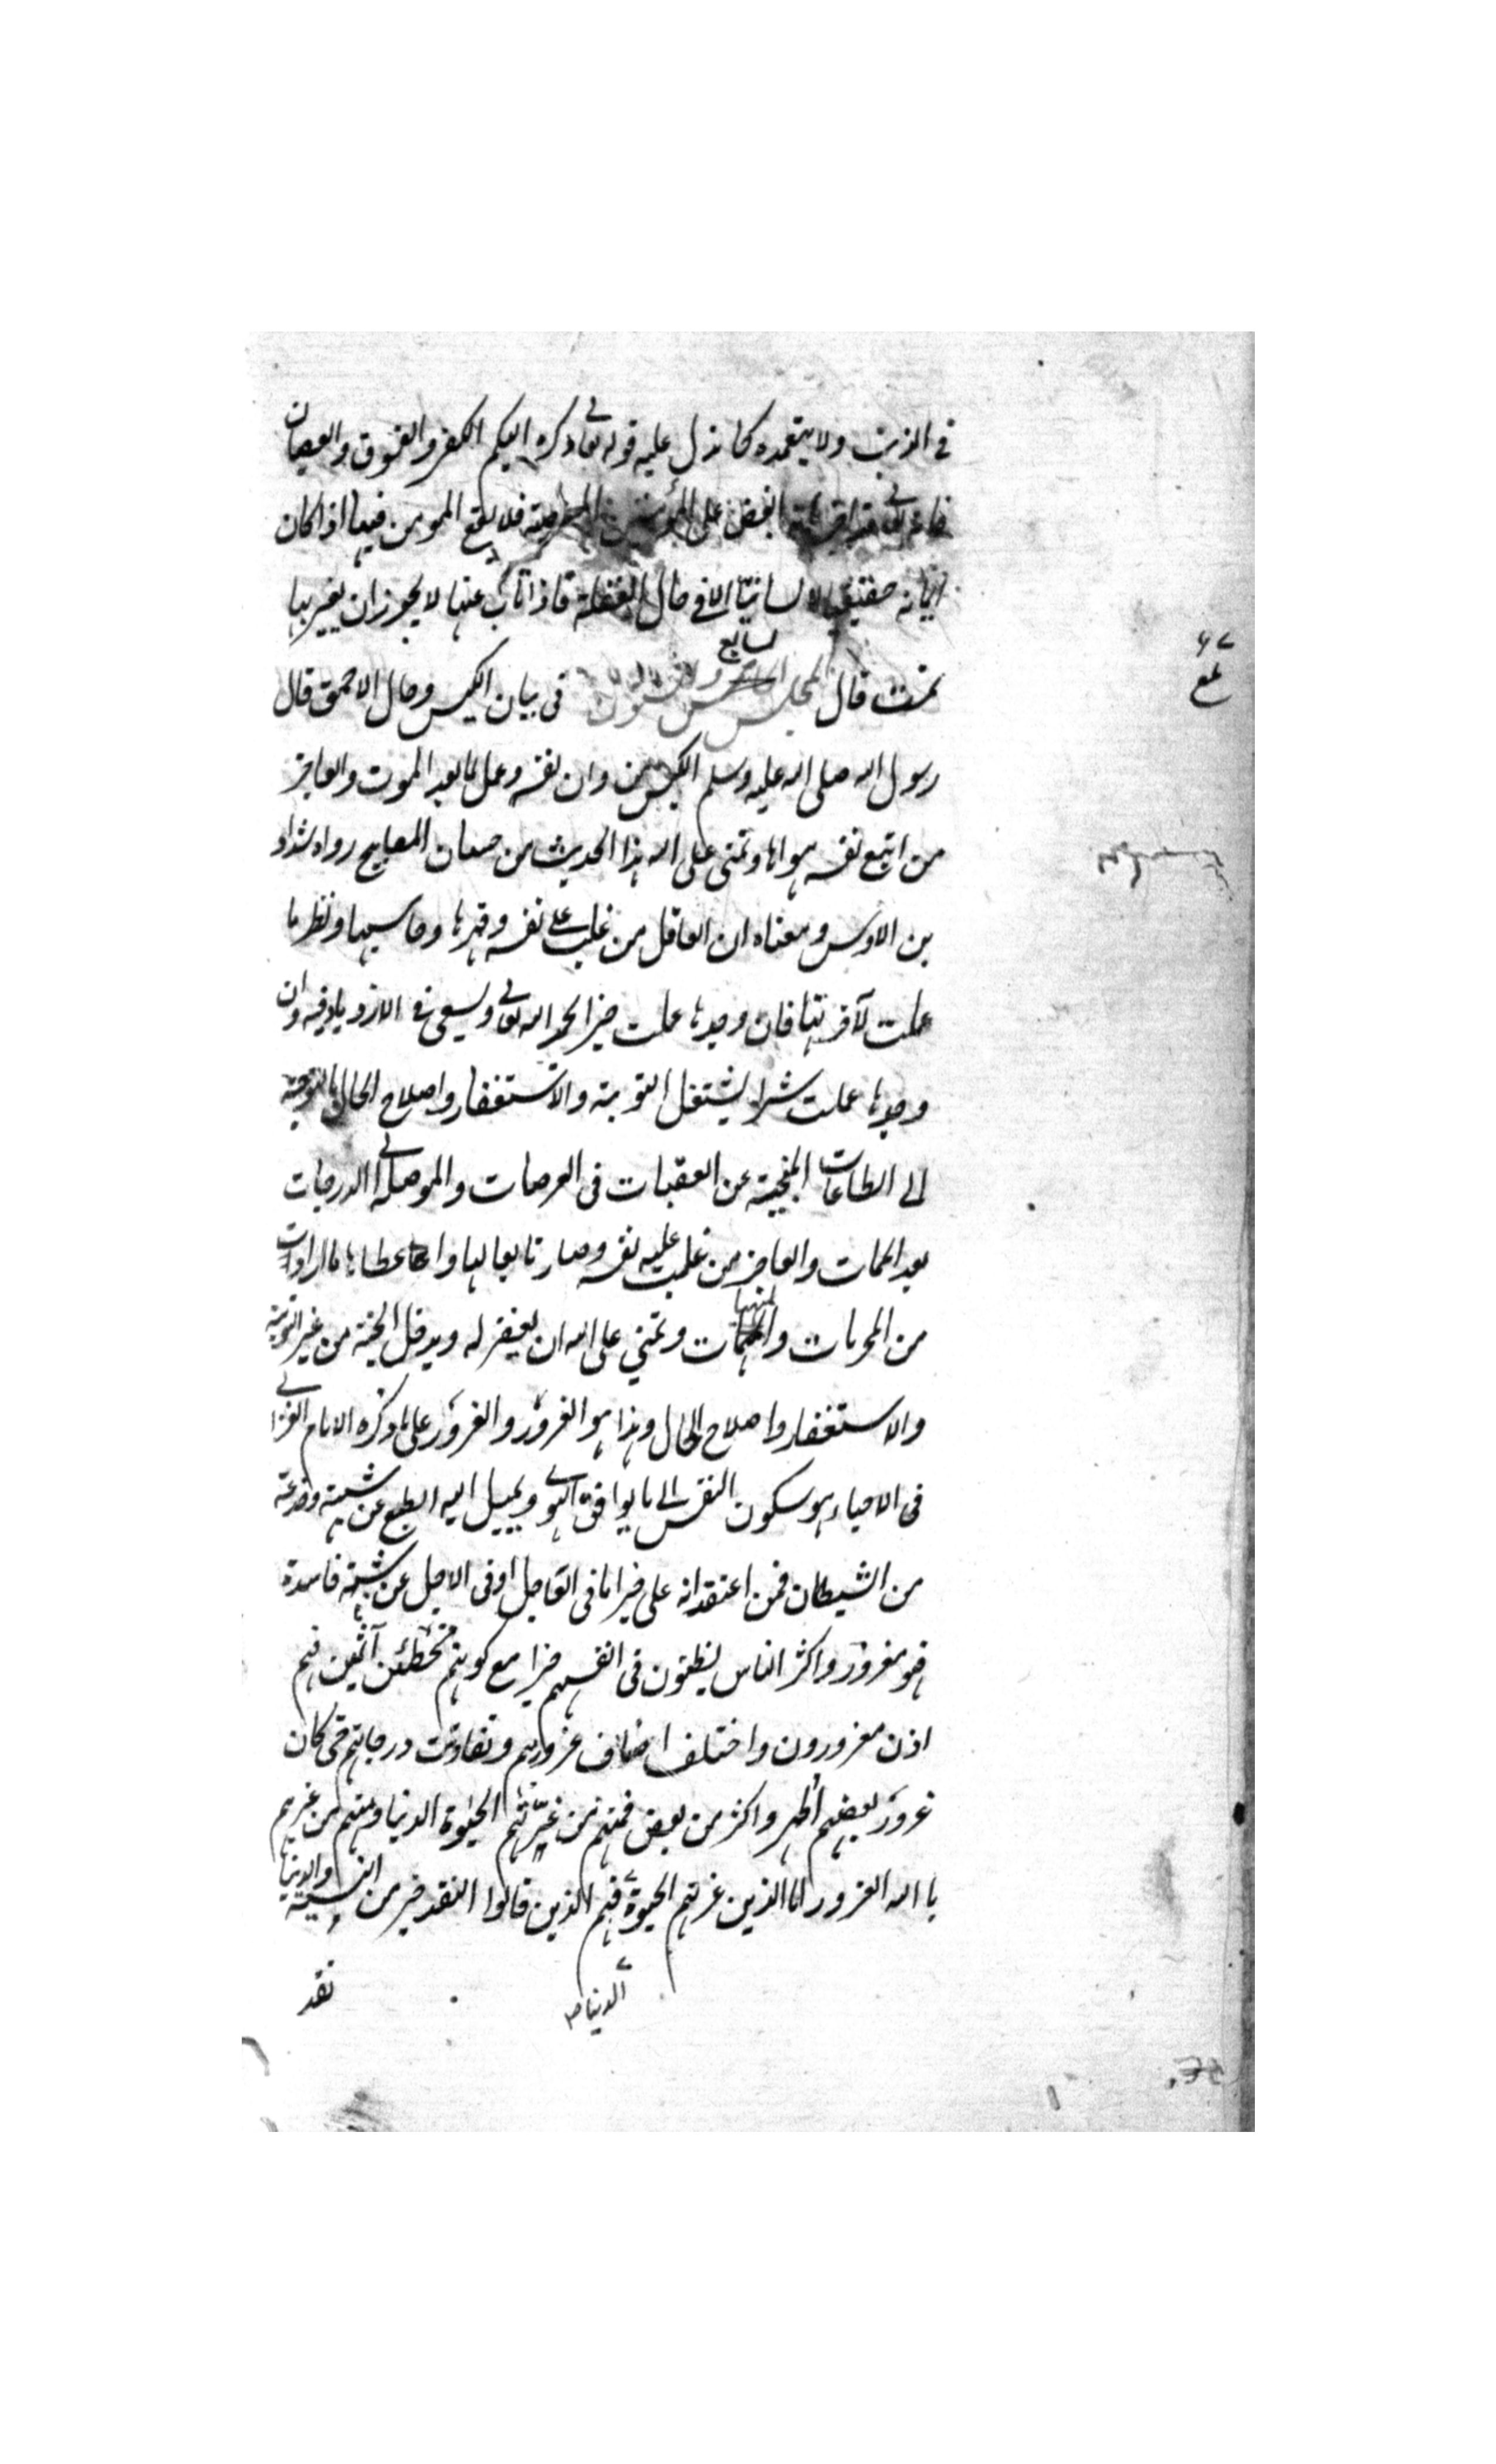 فى الذنب ولا يتعمده كما يدل عليه قوله تعالى وكره اليكم الكفر والفسوق والعصيان
فانه تعالى البغض على المؤمنين المعصية فلا يقع المومن فيها اذا كان
ايمانه حقيقيا لا لسانيا الا فى حال الغفلة فاذا تاب عنها لا يجوز ان يعير بها
تمت قال المجلس السابع والستون فى بيان الكيس وحال الاحمق قال
رسول الله صلى الله عليه وسلم الكيس من دان نفسه وعمل لما بعد الموت والعاجز
من اتبع نفسه هواها وتمنى على الله هذا الحديث من حسان المصابيح رواه شداد
بن الاوس ومعناه ان العاقل من غلب على نفسه وقهرها وحاسبها ونظر ما
عملت لآخرتها فان وجدها عملت خيرا لحمد الله تعالى ويسعى فى الازدياد فيه وان
وجدها عملت شرا ليشتغل التوبة والاستغفار واصلاح الحال بالتوجه
الى الطاعات المنجية عن العقبات فى العرصات والموصلة الى الدرجات
بعد الممات والعاجز من غلبت عليه نفسه وصار تابعا لها واعطاها ما ارادت
من المحرمات والمنهيات وتمنى على الله ان يغفر له ويدخل الجنة من غير التوبة
والاستغفار واصلاح الحال وهذا هو الغرور والغرور على ما ذكره الامام الغزالى
فى الاحياء هو سكون النفس الى ما يوافق الهوى ويميل اليه الطبع عن شبهة وخدعة
من الشيطان فمن اعتقد انه على خير اما فى العاجل او فى الاجل عن شبهة فاسدة
فهو مغرور واكثر الناس يظنون فى انفسهم خيرا مع كونهم مخطئين آثمين فهم
اذن مغرورون واختلف اصناف غرورهم وتفاوتت درجاتهم حتى كان
غرور بعضهم اظهر واكثر من بعض فمنهم من غرتهم الحيوة الدنيا ومنهم من غرهم
با الله الغرور اما الذين غرتهم الحيوة فهم الذين قالوا النقد خير من النسية والدنيا
الدنيا صح
نقد